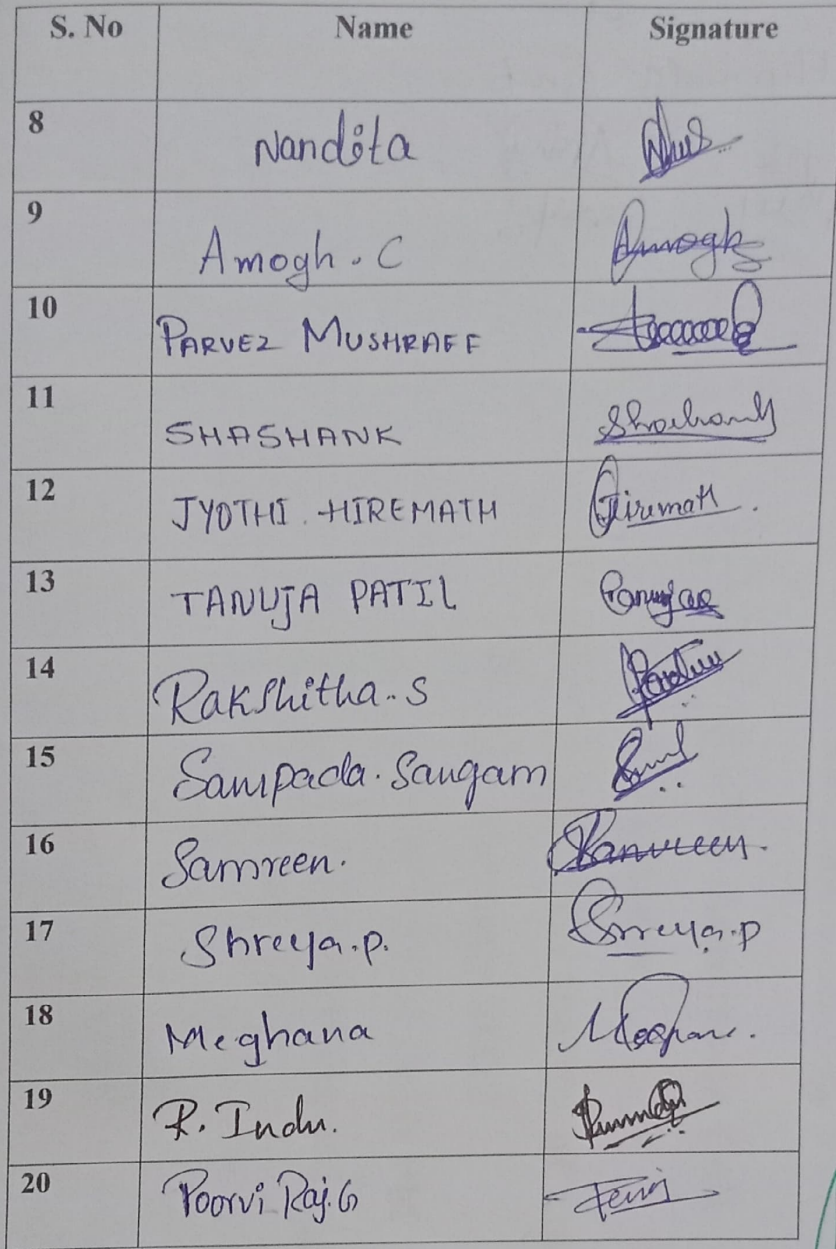 S. No Name Signature
8 Nandita
9 Amogh. C Amogh
10 PARVEZ MUSHRAFF
11 SHASHANK Shashank
12 JYOTHI. HIREMATH Hiremath
13 TANUJA PATIL
14 Rakshitha. S
15 Sampada. Sangam
16 Samreen.
17 Shreya. p. Shreya. p
18 Meghana
19 R. Indu.
20 Poorvi Raj. G